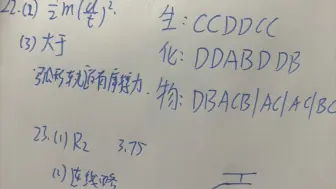 22.(2) ½m(d/t)².
(3) 大于
弧形轨道有摩擦力.
23.(1) R₂ 3.75
(2) 连线略
生: CCDDCC
化: DDABDDB
物: DBACB/AC/AC/BC